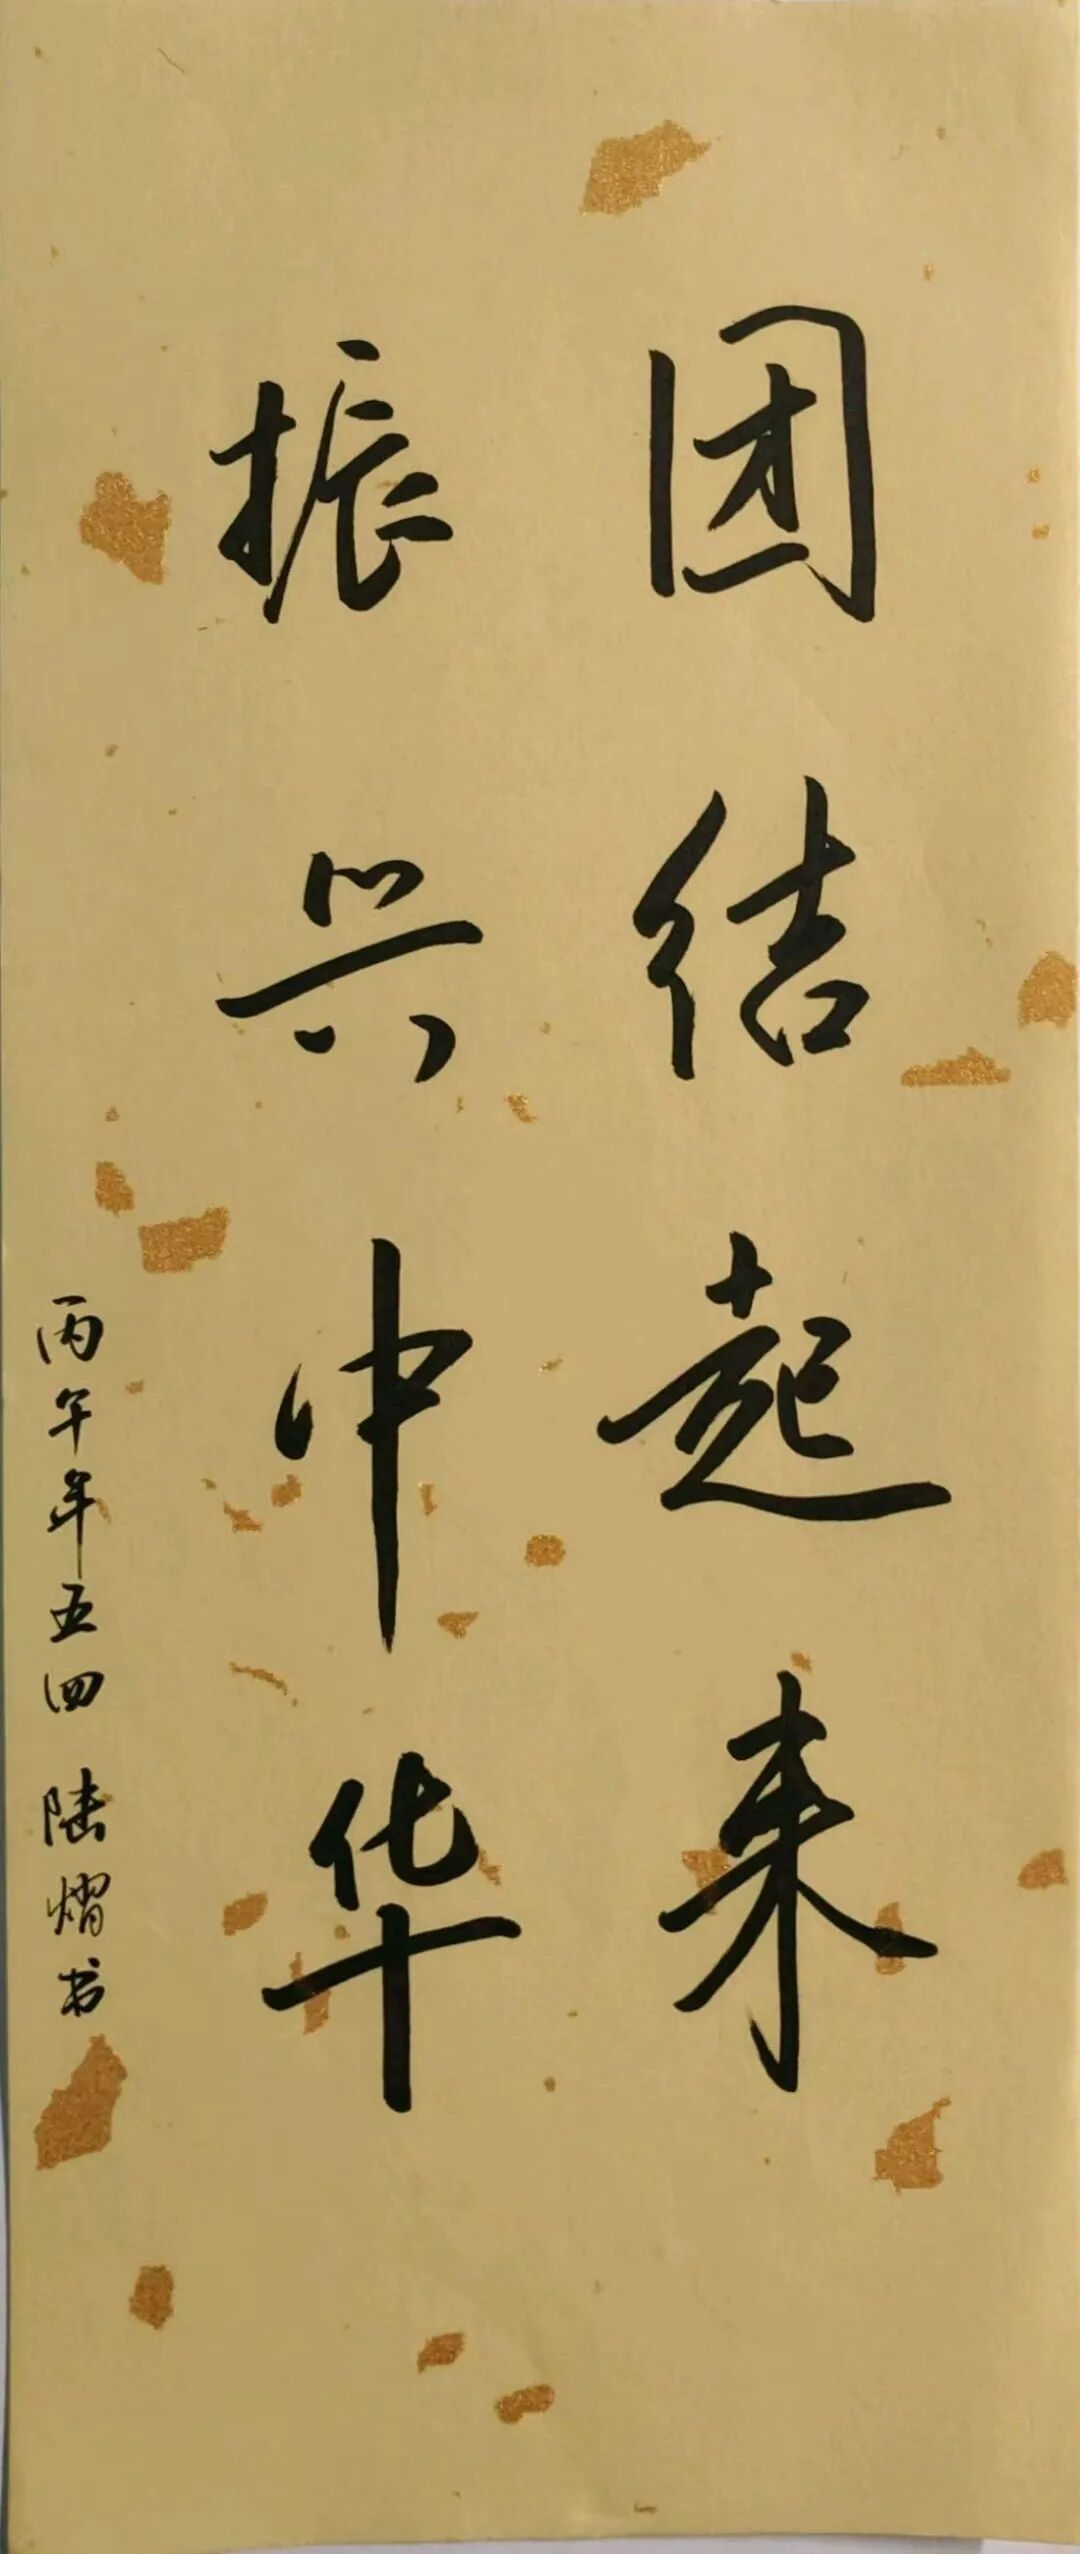 团结起来
振兴中华
丙午年五四 陆熠书